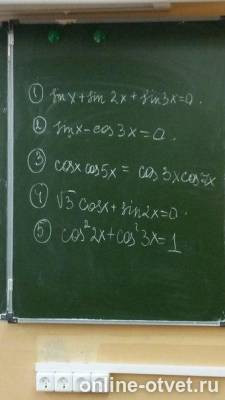 ① sinx+sin 2x+sin3x=0.
② sinx-cos3x=0.
③ cosx cos5x = cos3x cos7x
④ √3 cosx+sin2x=0.
⑤ cos²2x+cos²3x=1
online-otvet.ru